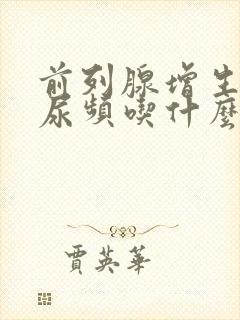 前列腺增生
尿頻喫什麼
賈英華